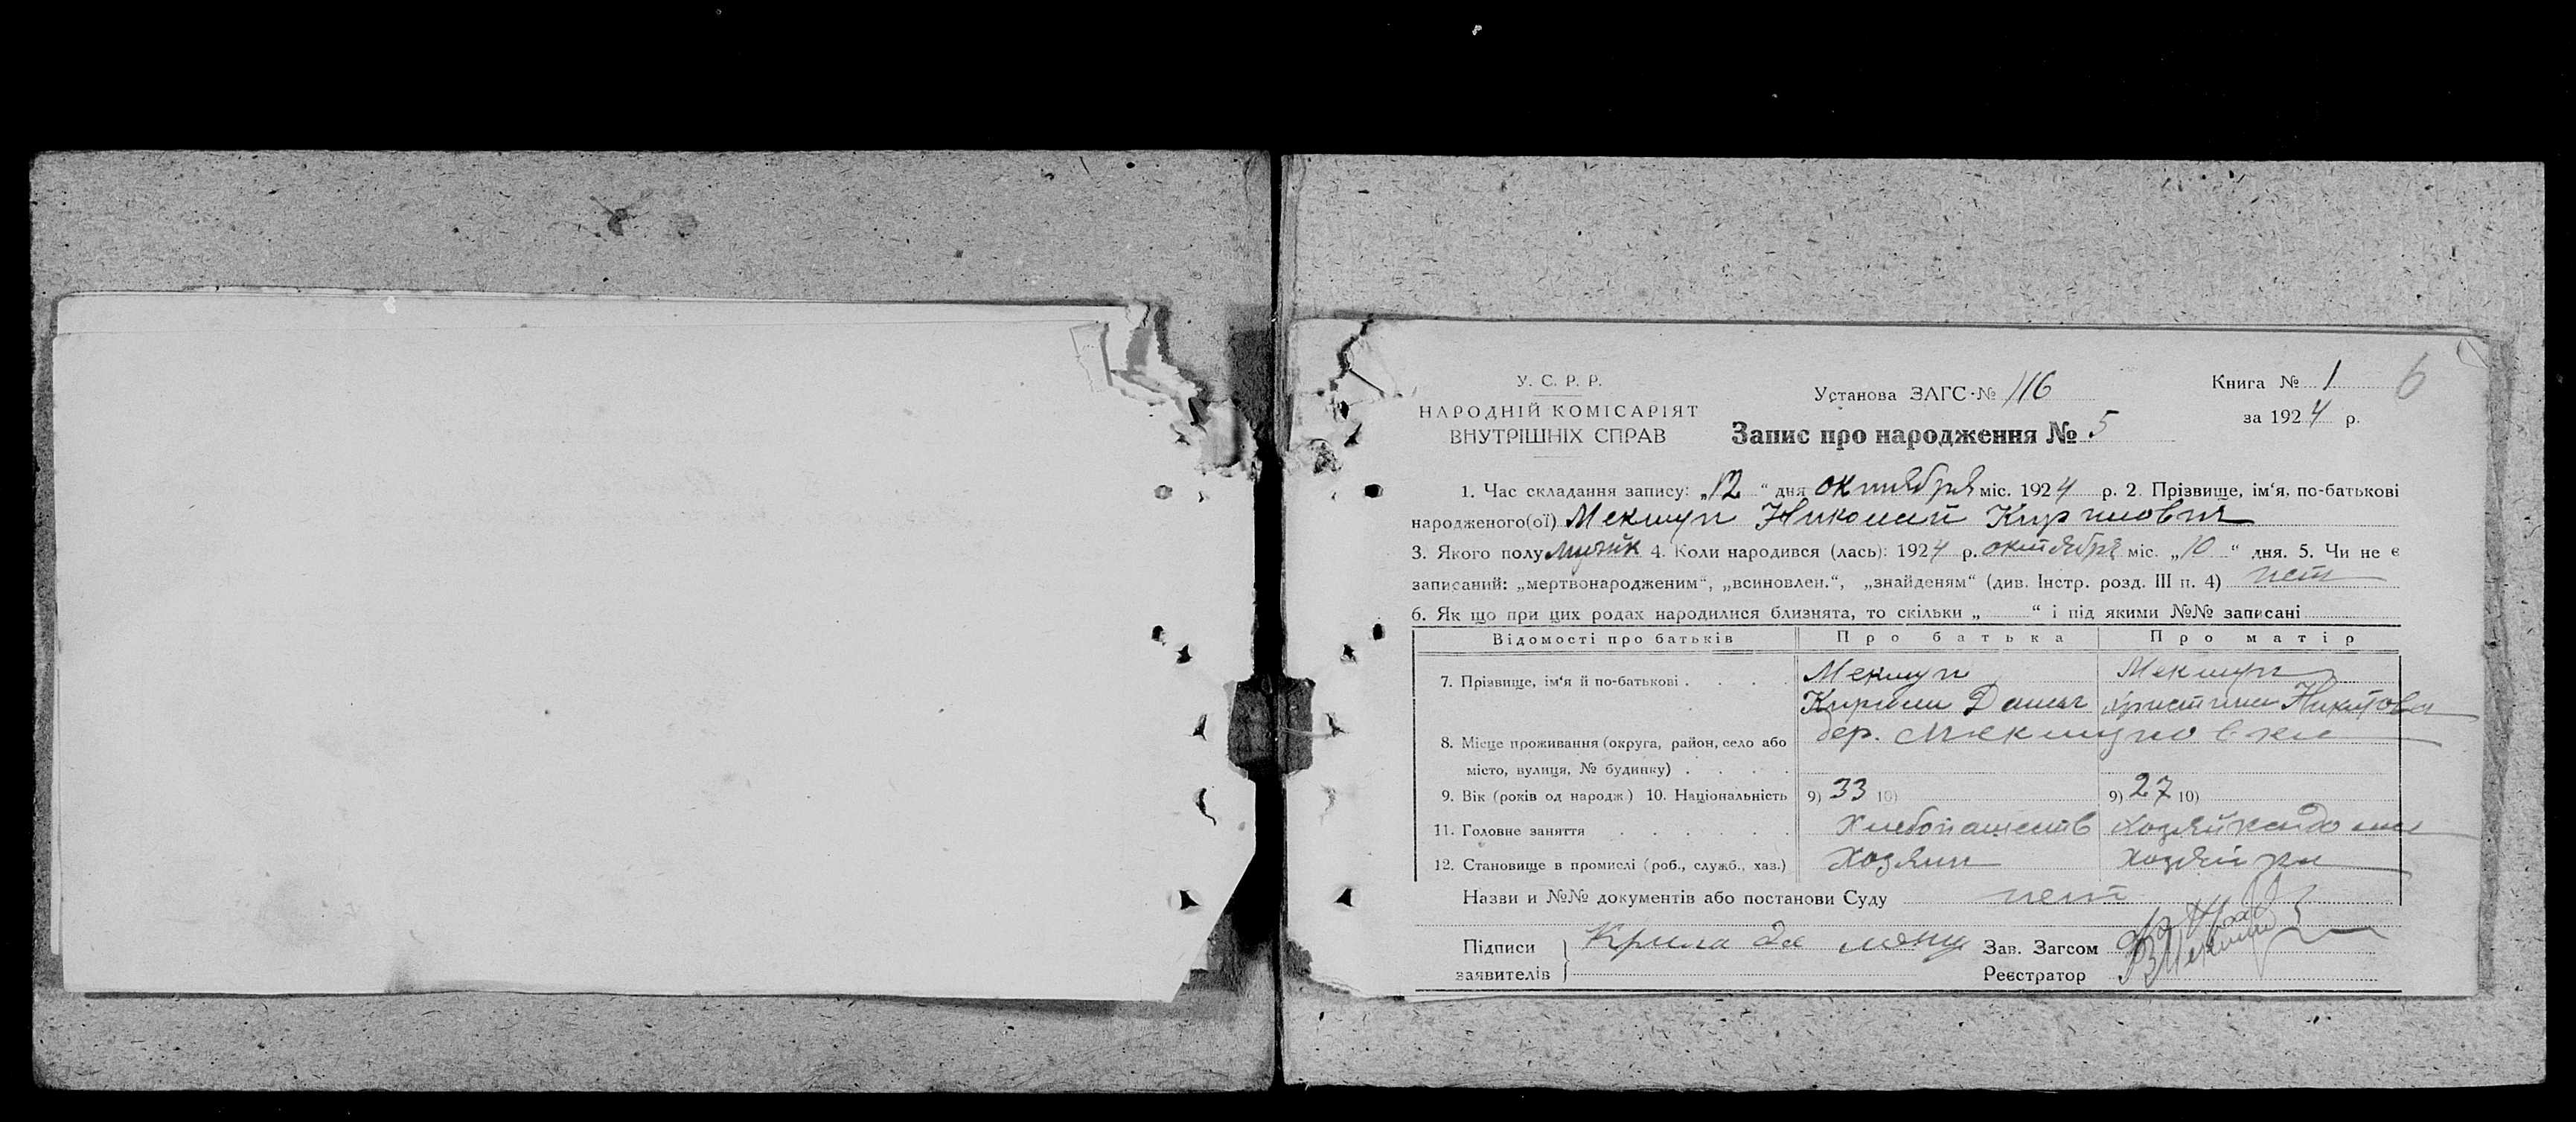 У. С. Р. Р.
НАРОДНІЙ КОМІСАРІЯТ
ВНУТРІШНІХ СПРАВ
Установа ЗАГС-№ 116
Запис про народження № 5
Книга № 1
6
за 1924 р.
1. Час складання запису: „12“ дня октября міс. 1924 р. 2. Прізвище, ім‘я, по-батькові
народженого(ої) Мекшун Николай Кирилович
3. Якого полу мужск 4. Коли народився (лась): 1924 р. октября міс. „10“ дня. 5. Чи не є
записаний: „мертвонародженим“, „всиновлен.“, „знайденям“ (див. Інстр. розд. III п. 4) нет
6. Як що при цих родах народилися близнята, то скільки „ “ і під якими №№ записані
Відомості про батьків Про батька Про матір
7. Прізвище, ім‘я й по-батькові . . . . Мекшун Мекшун
Кирилл Данил Христина Никитовна
8. Місце проживання (округа, район, село або дер. Мекшуновка
місто, вулиця, № будинку) . . . .
9. Вік (років од народж.) 10. Національність 9) 33 10) 9) 27 10)
11. Головне заняття . . . . . . Хлебопашеств Хозяйкадома
12. Становище в промислі (роб., служб., хаз.) Хозяин хозяйка
Назви и №№ документів або постанови Суду нет
Підписи
заявителів
Зав. Загсом
Реєстратор